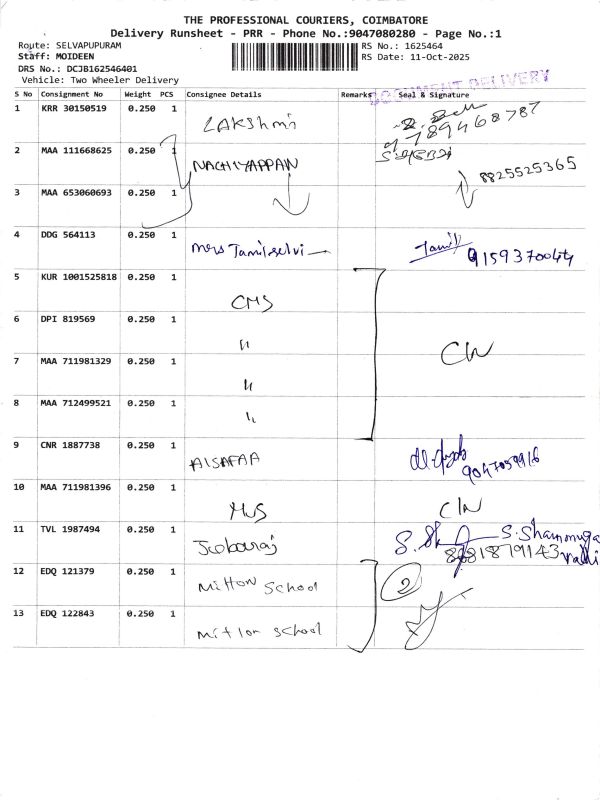 THE PROFESSIONAL COURIERS, COIMBATORE
Delivery Runsheet - PRR - Phone No.:9047080280 - Page No.:1
Route: SELVAPUPURAM RS No.: 1625464
Staff: MOIDEEN RS Date: 11-Oct-2025
DRS No.: DCJB162546401
Vehicle: Two Wheeler Delivery
DOCUMENT DELIVERY
S No Consignment No Weight PCS Consignee Details Remarks Seal & Signature
1 KRR 30150519 0.250 1 LAKSHmi 9789468787
2 MAA 111668625 0.250 1 NACHIYAPPAN 8825525365
3 MAA 653060693 0.250 1
4 DDG 564113 0.250 1 Mrs Tamilselvi Tamil 9159370044
5 KUR 1001525818 0.250 1 CMS
6 DPI 819569 0.250 1 "
7 MAA 711981329 0.250 1 "
8 MAA 712499521 0.250 1 "
9 CNR 1887738 0.250 1 AlSAFAA 9047059916
10 MAA 711981396 0.250 1
11 TVL 1987494 0.250 1 S. Shanmuga
12 EDQ 121379 0.250 1 Milton School 2
13 EDQ 122843 0.250 1 Milton School